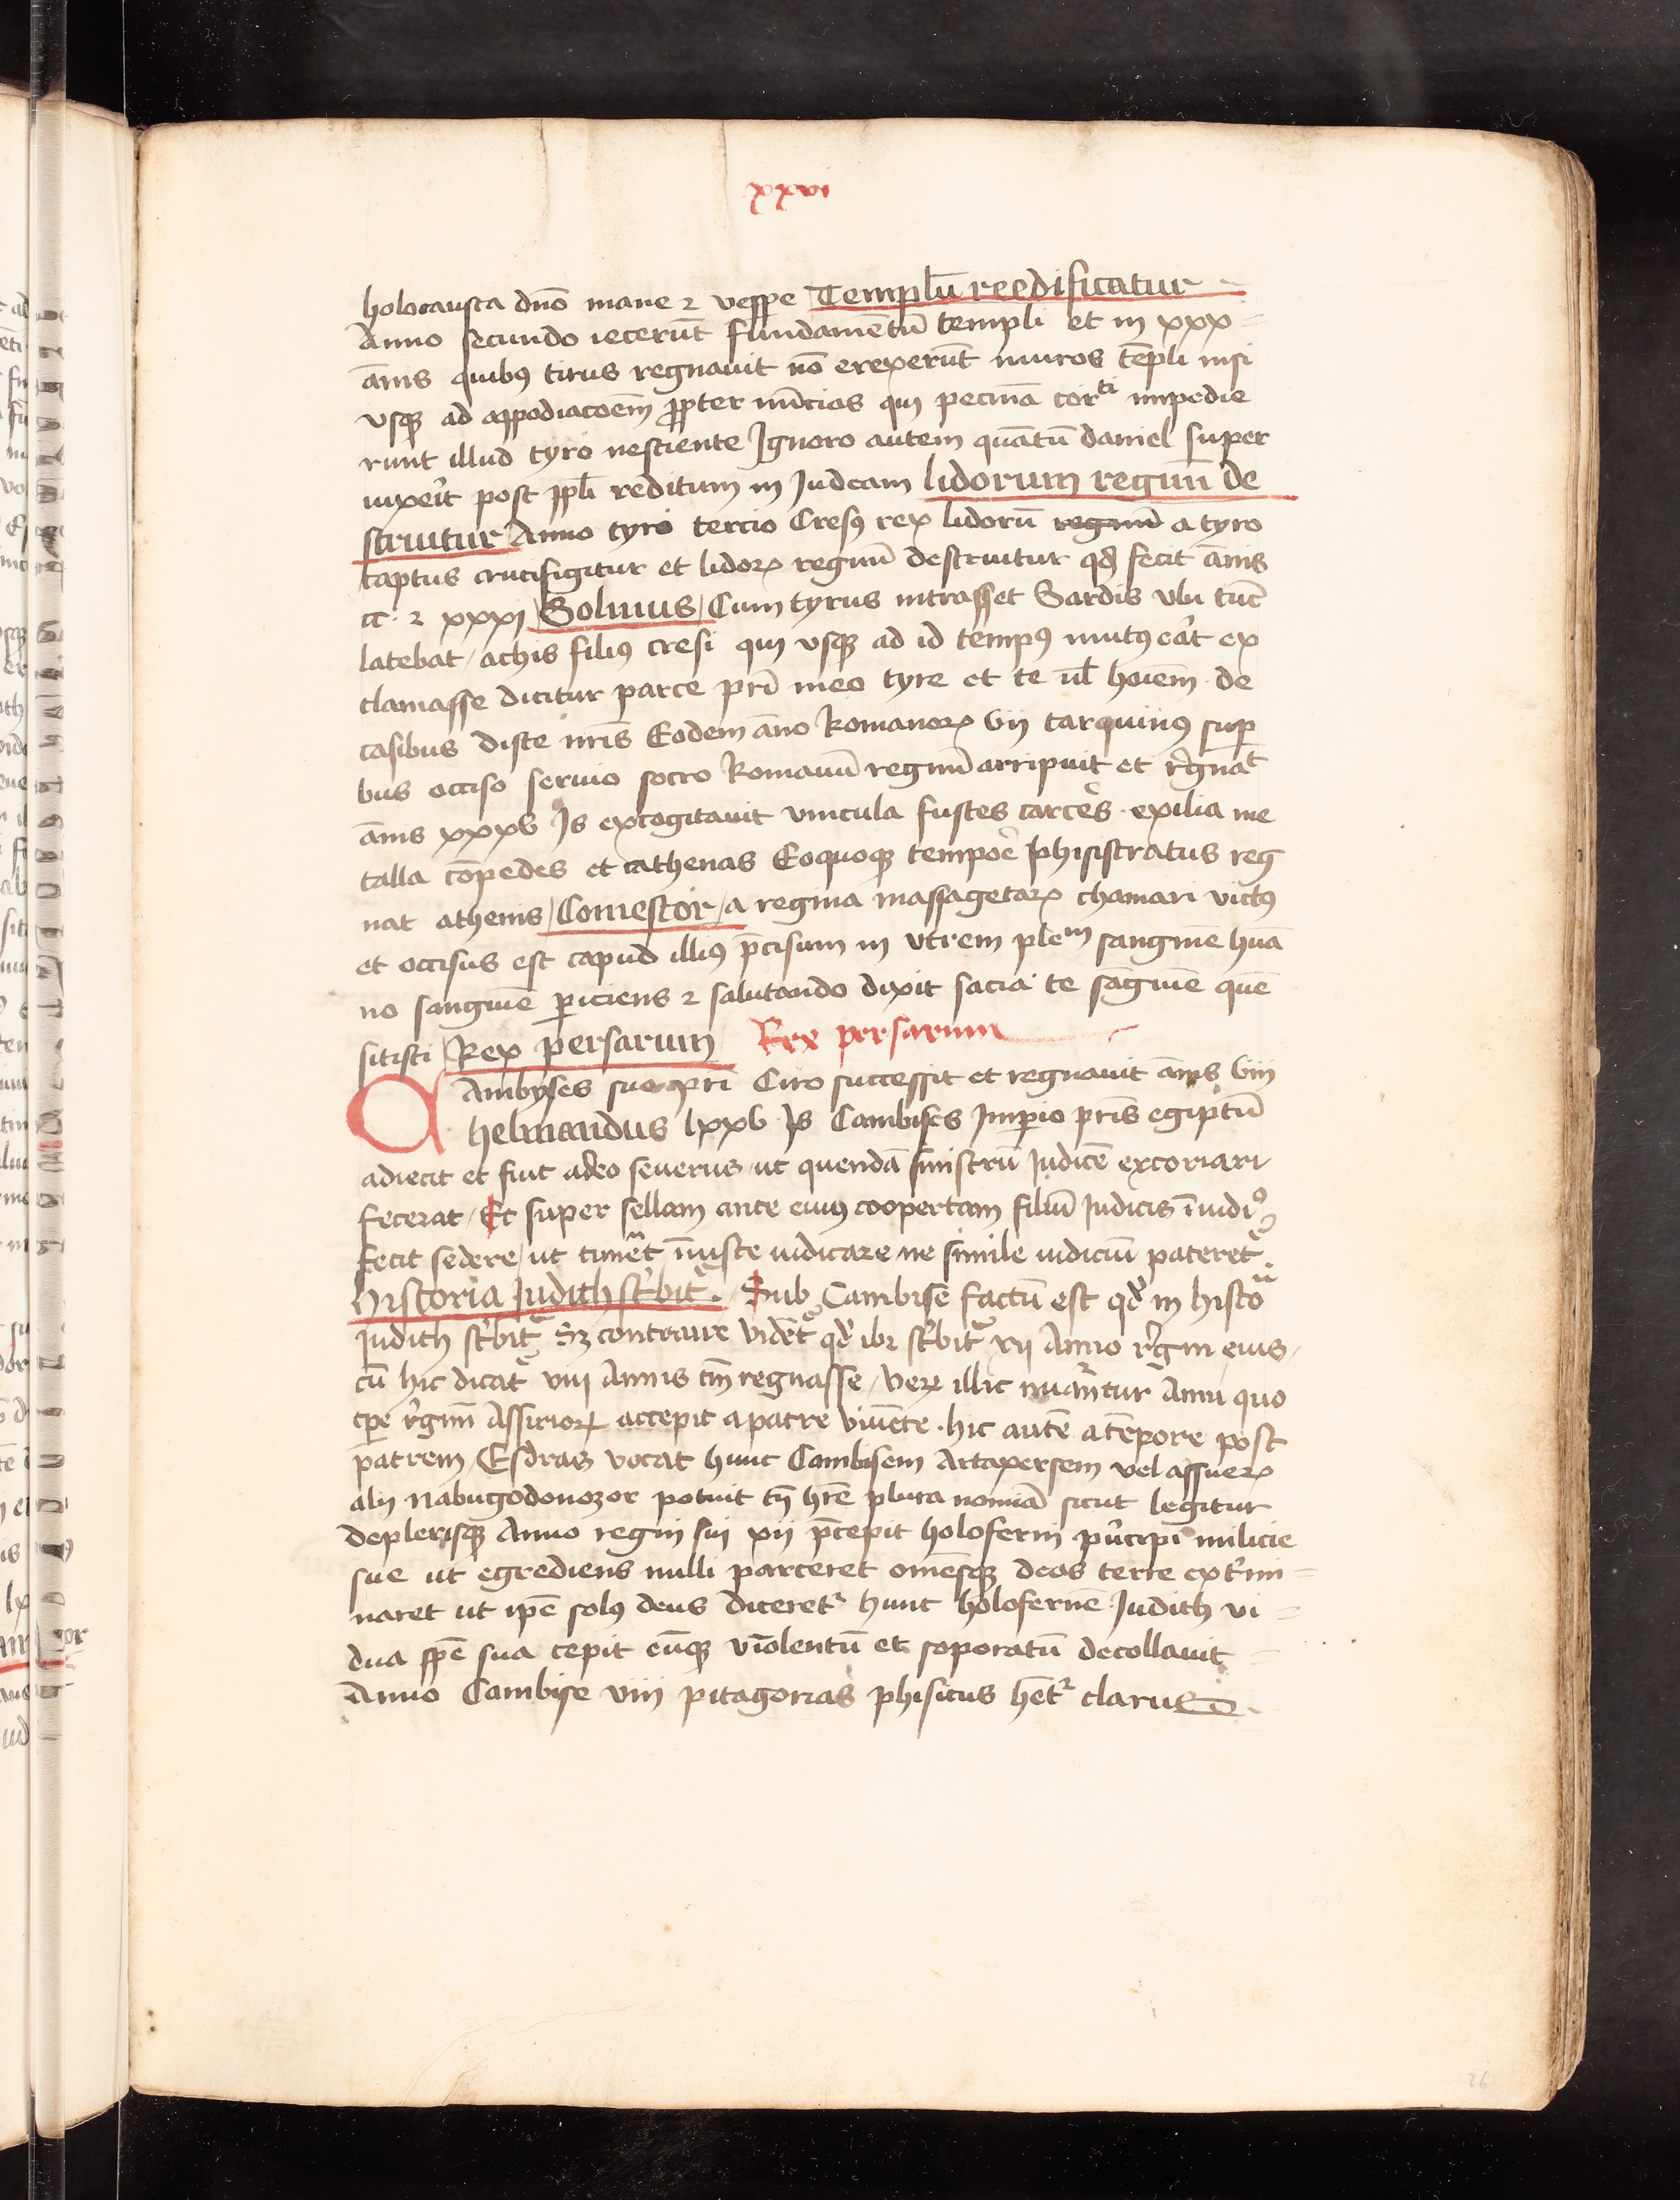 xxvi
holocausta dnō mane ⁊ vespe Templū reedificatur
Anno secundo iecerūt fundamētū templi et in xxx
ānis quibꝰ tirus regnauit nō erexerūt muros tēpli nisi
vsqꝫ ad ꝓpter nūcios qui pecuīa impedie
runt illud tyro nesciente Ignoro autem quātū daniel super
uixeīt post ppl̄i reditum in Iudeam lidorum regnū de
struitur Anno tyri tercio Cresꝰ rex lidorū regnū a tyro
captus crucifigitur et lidoꝝ regnū destruitur qd̄ fecit ānis
cc · ⁊ xxxi Solinus Cum tyrus intrasset Sardis vbi tūc
latebat / achis filiꝰ cresi qui vsqꝫ ad id tempꝰ mutꝰ eāt ex
clamasse dicitur parce pr̄i meo tyre et te ul̄ hoīem de
casibus disce nr̄is Eodem āno Romanoꝝ vij tarquiniꝰ suꝑ
bus occiso seruio socro Romanū regnū arripuit et r̄gnat
ānis xxxv Is excogitauit vincula fustes carcēs · exilia me
talla cōpedes et cathenas Eoquoqꝫ tempoē phisistratus reg
nat athenis / Comestor / a regina massagetaꝝ thamari victꝰ
et occisus est capud illiꝰ p̄cisum in vtrem plenᵐ sanguīe hūa
no sanguīe ꝓiciens ⁊ salutando dixit sacia te sāguīe quē
sitisti Rex persarum Rex persarum
Ambyses suo pr̄i Ciro successit et regnauit ānis viij
helmandus lxxv Is Cambises Impio pr̄is egiptū
adiecit et fuit adeo seuerus ut quendā sinistrū Iudicē excoriari
fecerat / Et super sellam ante eiuꝰ coopertam filiū Iudicis
fecit sedere / ut timēt īiuste iudicare ne simile iudiciū pateret᷑
historia Iudith sc̄bit᷑ . Sub Cambise factū est qd̄ in histo
Iudith sc̄bit᷑ Sꝫ contraire vidēt᷑ qd̄ ibi sc̄bit᷑ xij Anno r̄gni eius /
cū hic dicat᷑ viij Annis tm̄ regnasse / veꝝ illic nūāntur Anni quo
tꝑe r̄gnū Assirioꝝ accepit a patre viuēte · hic autē a tēpore post
patrem / Esdras vocat hunc Cambisem Artaxersem vel assueꝝ
alij Nabugodonozor potuit h̄re plura nomiā sicut legitur
deplerisqꝫ Anno regni sui xij p̄cepit holoferni pīcipi milicie
sue ut egrediens nulli parceret omēsqꝫ deos terre ext̄mi
naret ut ip̄e solꝰ deus diceret᷑ hunc holofernē Iudith vi
dua spē sua cepit eūqꝫ violentū et soporatū decollauit
Anno Cambise viij pitagorias phisicus het᷑ clarus
26